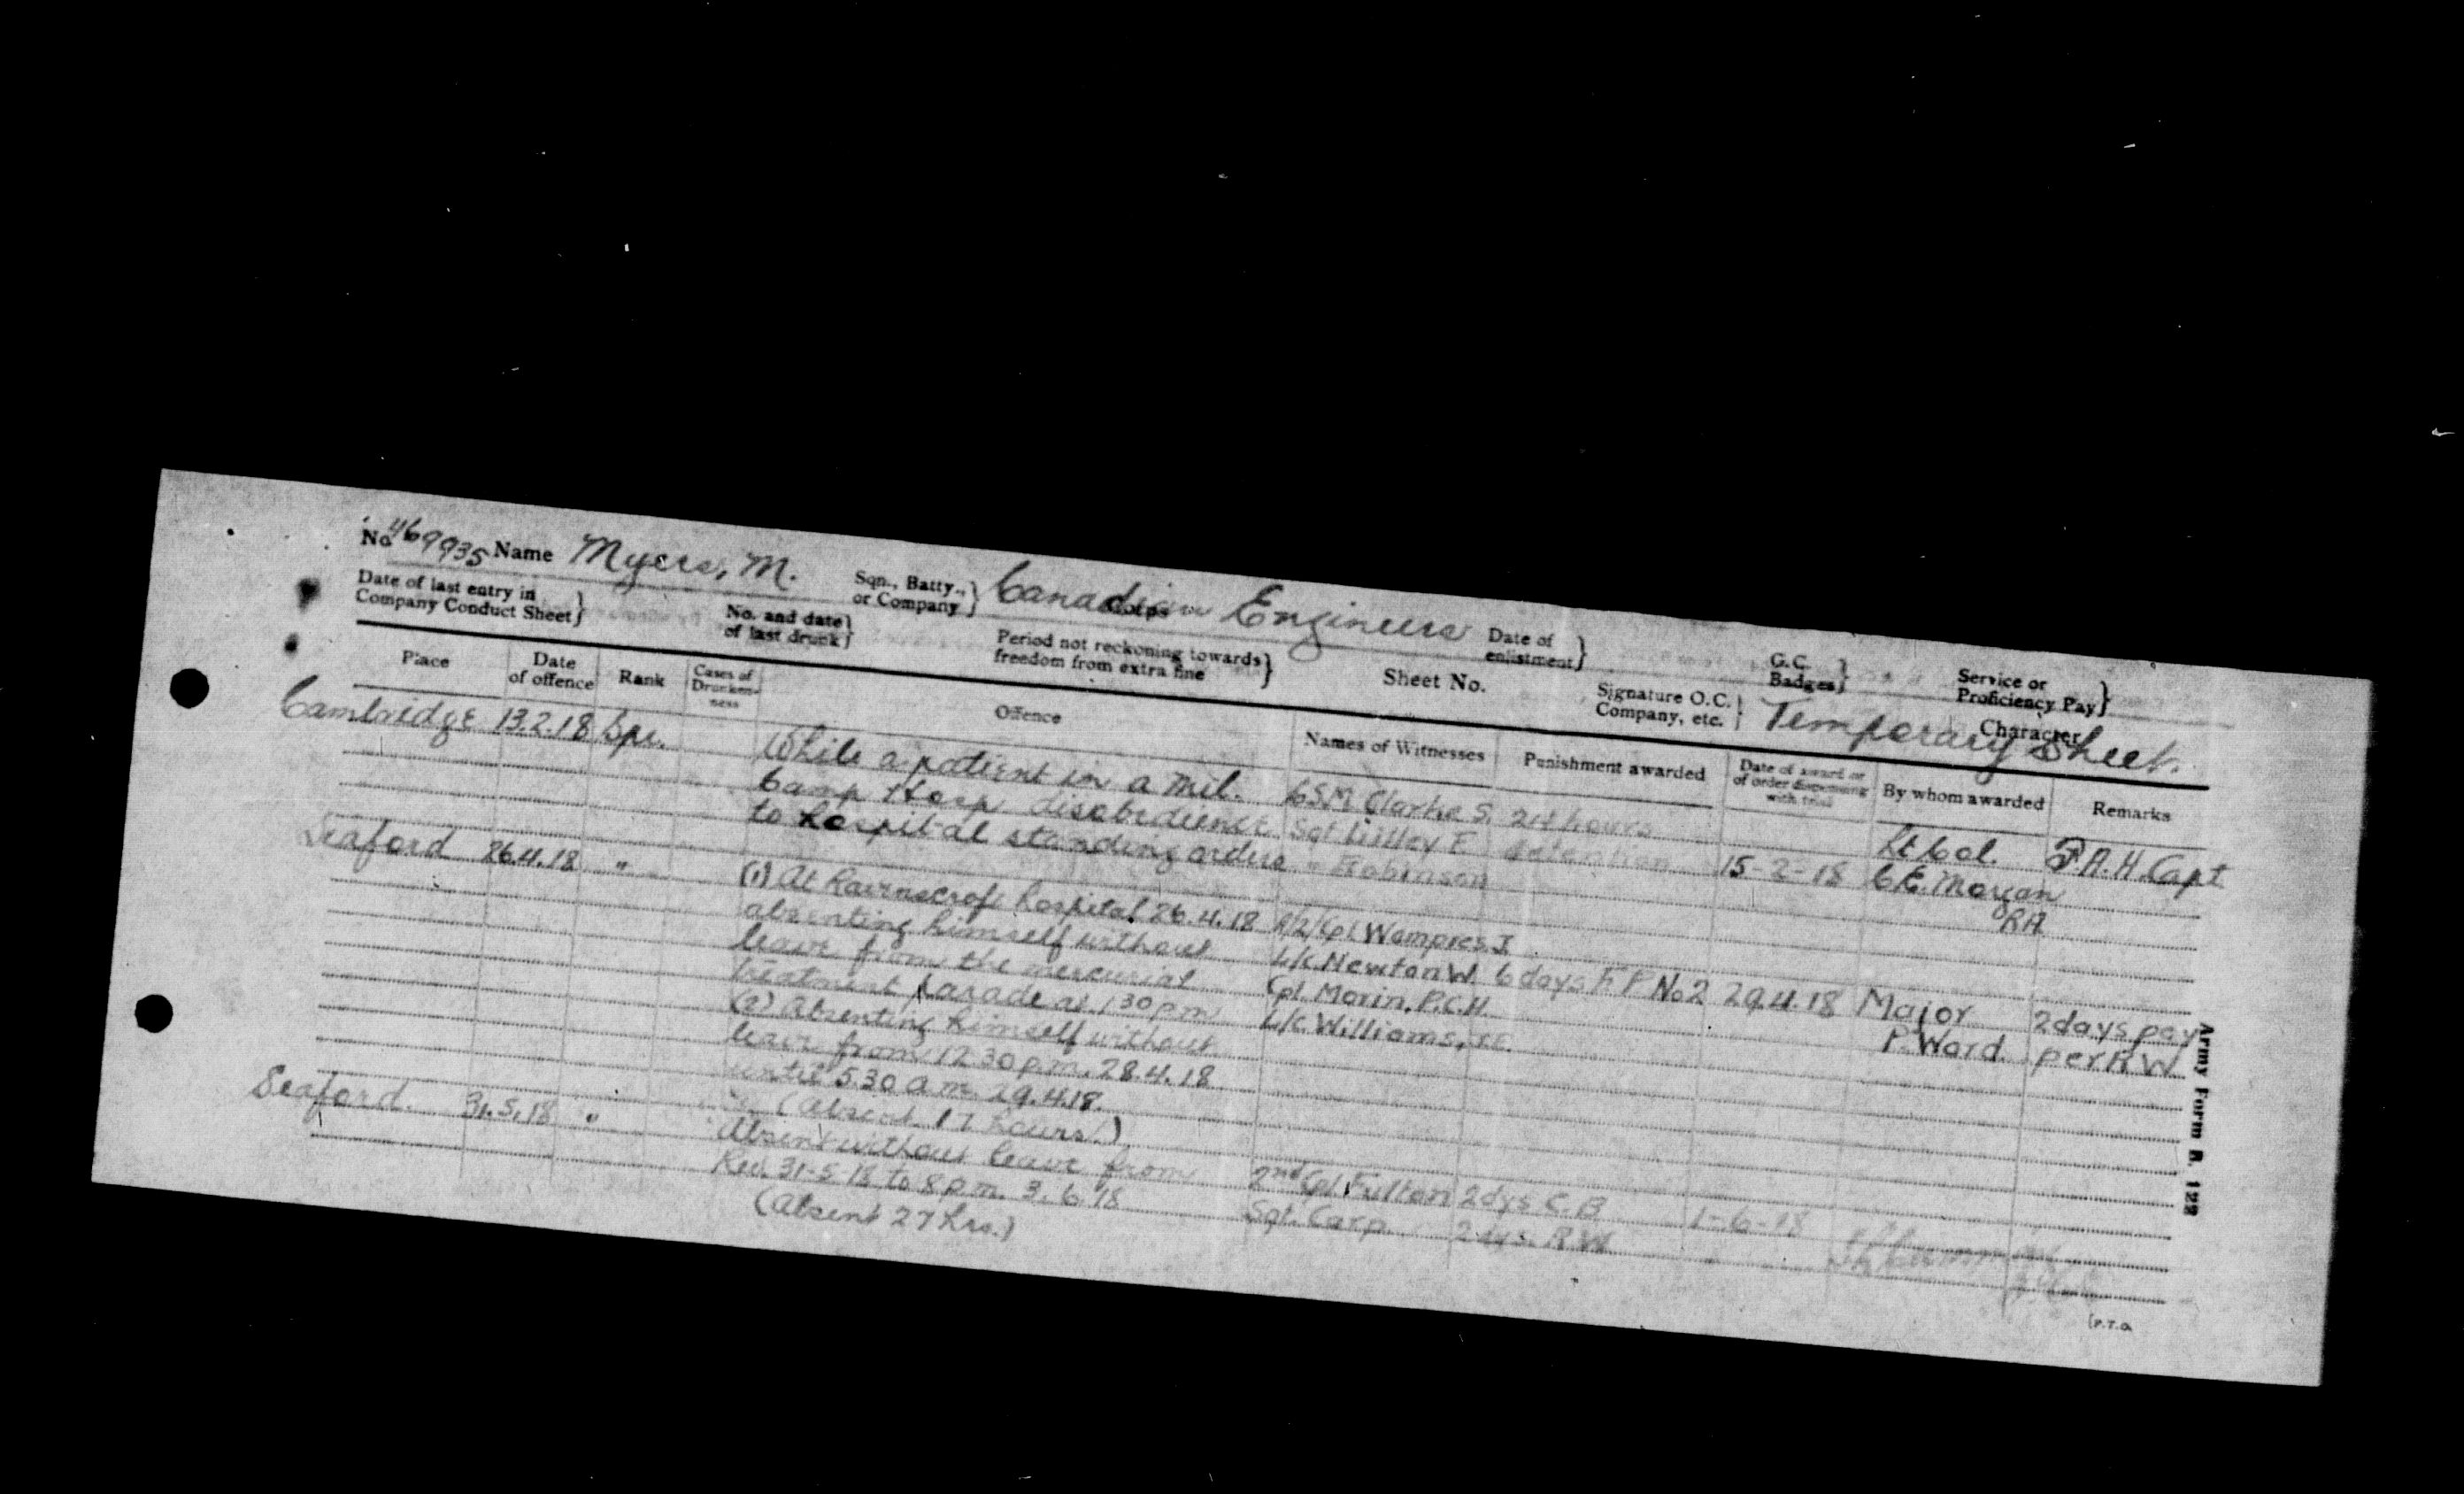 No. 469935 Name Myers, M. Sqn., Batty., or Company} Canadian Engineers Corps Date of enlistment} G.C. Badges} Service or Proficiency Pay}
Date of last entry in Company Conduct Sheet} No. and date of last drunk} Period not reckoning towards freedom from extra fine} Sheet No. Signature O.C. Company, etc.} Temporary Sheet. Character
Place Date of offence Rank Cases of Drunkenness Offence Names of Witnesses Punishment awarded Date of award or of order dispensing with trial By whom awarded Remarks
Cambridge 13.2.18 Spr. While a patient in a Mil. CSM Clarke S. 24 hours Lt Col. F.A.H. Capt
Camp Hosp disobedience Sgt Lilley E detention 15-2-18 C.E. Morgan
to hospital standing orders " Robinson RA
Seaford 26.4.18 " (1) At Ravenscroft hospital 26.4.18 A/2/Cpl Wampres. I
absenting himself without L/c Newton W. 6 days F P No 2 29.4.18 Major 2 days pay
leave from the mercurial Cpl. Morin. P.C.H. P. Ward. per R W
treatment parade at 1 30 pm L/c Williams,
(2) Absenting himself without
leave from 12 30 p.m. 28.4.18
until 5.30 a.m. 29.4.18.
(Absent 17 hours.)
Seaford. 31.5.18 " Absent without leave from 2nd Cpl. Fulton 2 dys C.B 1-6-18
Rev. 31-5-18 to 8 p.m. 3.6.18 Sgt. Carp. 2 dys. R W
(Absent 27 hrs.)
[P.T.O.
Army Form B. 122